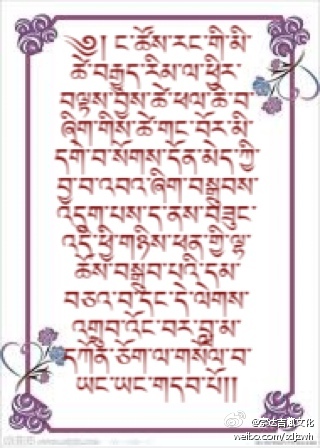 ༄༅། ང་ཚོས་རང་གི་མི་
ཚེ་བརྒྱད་རིམ་ལ་ཕྱིར་
བལྟས་བྱས་ཚེ་ཕལ་ཆེ་བ་
ཞིག་གིས་ཚེ་གང་བོར་མི་
དགེ་བ་སོགས་དོན་མེད་ཀྱི་
བྱ་བ་འབའ་ཞིག་བསྒྲུབས་
འདུག་པས་ད་ནས་བཟུང་
འདི་ཕྱི་གཉིས་ཕན་གྱི་ལྷ་
ཆོས་བསྒྲུབ་པའི་དམ་
བཅའ་བ་དང་དེ་ལེགས་
འགྲུབ་འོང་བར་བླ་མ་
དཀོན་ཅོག་ལ་གསོལ་བ་
ཡང་ཡང་གདབ་པོ།།
weibo.com/sdjzwh